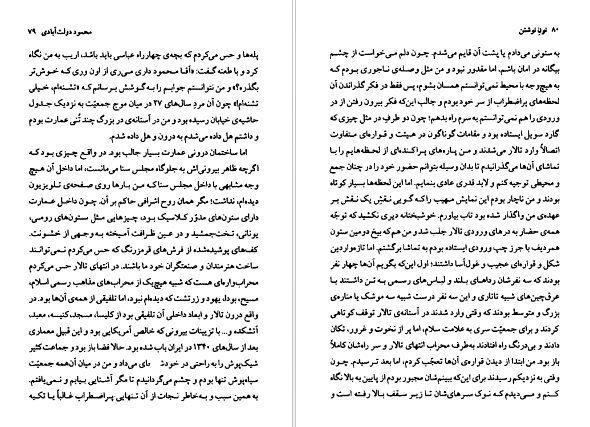 محمود دولت‌آبادی ۷۹
پله‌ها و حس می‌کردم که بچه‌ی چهارراه عباسی باید باشد، اریب به من نگاه
کرد و با طعنه گفت: «آقا محمود داری می‌ری از اون وری که خوش‌تر
بگذره؟» و من نتوانستم جوابم را به گوشش برسانم که «تشنه‌ام، خیلی
تشنه‌ام!» چون آن مردِ سال‌های ۲۷ در میان موج جمعیّت به نزدیک جدول
حاشیه‌ی خیابان رسیده بود و من در آستانه‌ی در بزرگ چند تُنی عمارت بودم
و داشتم هل داده می‌شدم به درون و هل داده شدم.
اما ساختمان درونی عمارت بسیار جالب بود. در واقع چیزی بود که
اگرچه ظاهر بیرونی‌اش به جلوگاه مجلس سنا می‌مانست، اما داخل آن هیچ
وجه مشابهی با داخل مجلس سنا که من بارها روی صفحه‌ی تلویزیون
دیده‌ام، نداشت؛ مگر همان روح اشرافی حاکم بر آن. چون داخل عمارت
دارای ستون‌های مدوّر کلاسیک بود، چیزهایی مثل ستون‌های رومی،
یونانی، تخت‌جمشید و در عین ظرافت آمیخته به وجهی از خشونت.
کف‌های پوشیده‌شده از فرش‌های قرمزرنگ که حس می‌کردم نمی‌توانند
ساخت هنرمندان و صنعتگران خود ما باشند. در انتهای تالار حس می‌کردم
محراب‌واره‌ای هست که شبیه هیچ‌یک از محراب‌های مذاهب رسمی اسلام،
مسیح، بودا، یهود و زرتشت که دیده‌ام نبود، اما تلفیقی از همه‌ی آن‌ها بود. در
واقع درون تالار و ابعاد داخلی آن تلفیقی بود از کلیسا، مسجد، کنیسه، معبد،
آتشکده و... با تزیینات بیرونی که خالص آمریکایی بود و این قبیل معماری
بعد از سال‌های ۱۳۴۰ در ایران باب شده بود. حالا فضا باز بود و جماعت کثیر
شیک‌پوش را به راحتی در خود جای می‌داد و من در میان آن‌همه جمعیّت
سیاه‌پوش تنها بودم و چشم می‌گرداندم تا مگر آشنایی بیابم و نمی‌یافتم.
به همین سبب و به‌خاطر نجات از آن تنهایی پراضطراب غالباً یا تکیه
۸۰ نونِ نوشتن
به ستونی می‌دادم یا پشت آن قایم می‌شدم. چون دلم می‌خواست از چشم
بیگانه در امان باشم. اما مقدور نبود و من مثل وصله‌ی ناجوری بودم که
به هیچ‌وجه با محیط نمی‌توانستم همسان بشوم، پس فقط در فکر گذراندن آن
لحظه‌های پراضطراب از سر خود بودم و جالب این‌که فکر بیرون رفتن از در
ورودی را هم نمی‌توانستم به سرم راه بدهم؛ چون دو طرف در مثل چیزی که
گارد سویل ایستاده بود و مقامات گوناگون در هیئت و قواره‌ای متفاوت
اتصالاً وارد تالار می‌شدند و من پاره‌های پراکنده‌ای از لحظه‌هایم را با
تماشای آن‌ها می‌گذرانیدم تا بدان وسیله بتوانم حضور خود را در چنان جمع
و محیطی توجیه کنم و لابد قدری عادی بنمایم. اما این لحظه‌ها بسیار کوتاه
بودند و من ناچار بودم این نمایش مهیب را که گویی نقش یک نقش بر
عهده‌ی من واگذار شده بود تاب بیاورم. خوشبختانه دیری نکشید که توجّه
همه‌ی حضار به درهای ورودی تالار جلب شد و من هم که بیخ دومین ستون
همردیف با جرز چپ ورودی ایستاده بودم به تماشا برگشتم. اما تازه‌واردین
شکل و قواره‌ای عجیب و غول‌آسا داشتند؛ اول این‌که بگویم آن‌ها چهار نفر
بودند که سه نفرشان رداهای بلند و لباس‌های رسمی به تن داشتند با
عرق‌چین‌های شبیه تاتاری و این سه نفر درست شبیه سه موشک یا مناره‌ی
بزرگ و متوسط بودند که وقتی وارد شدند در آستانه‌ی تالار توقف کوتاهی
کردند و برای جمعیّت سری به علامت سلام، اما پر از نخوت و غرور، تکان
دادند و بی‌درنگ راه افتادند به‌طرف محراب انتهای تالار و سر راه‌شان کاملاً
باز بود. من ابتدا از دیدن قواره‌ی آن‌ها تعجّب کردم، اما بعد ترسیدم. چون
وقتی به نزدیکم رسیدند برای این‌که ببینم‌شان مجبور بودم از پایین به بالا نگاه
کنم و می‌دیدم که نوک سرهای‌شان تا زیر سقف بالا رفته است و